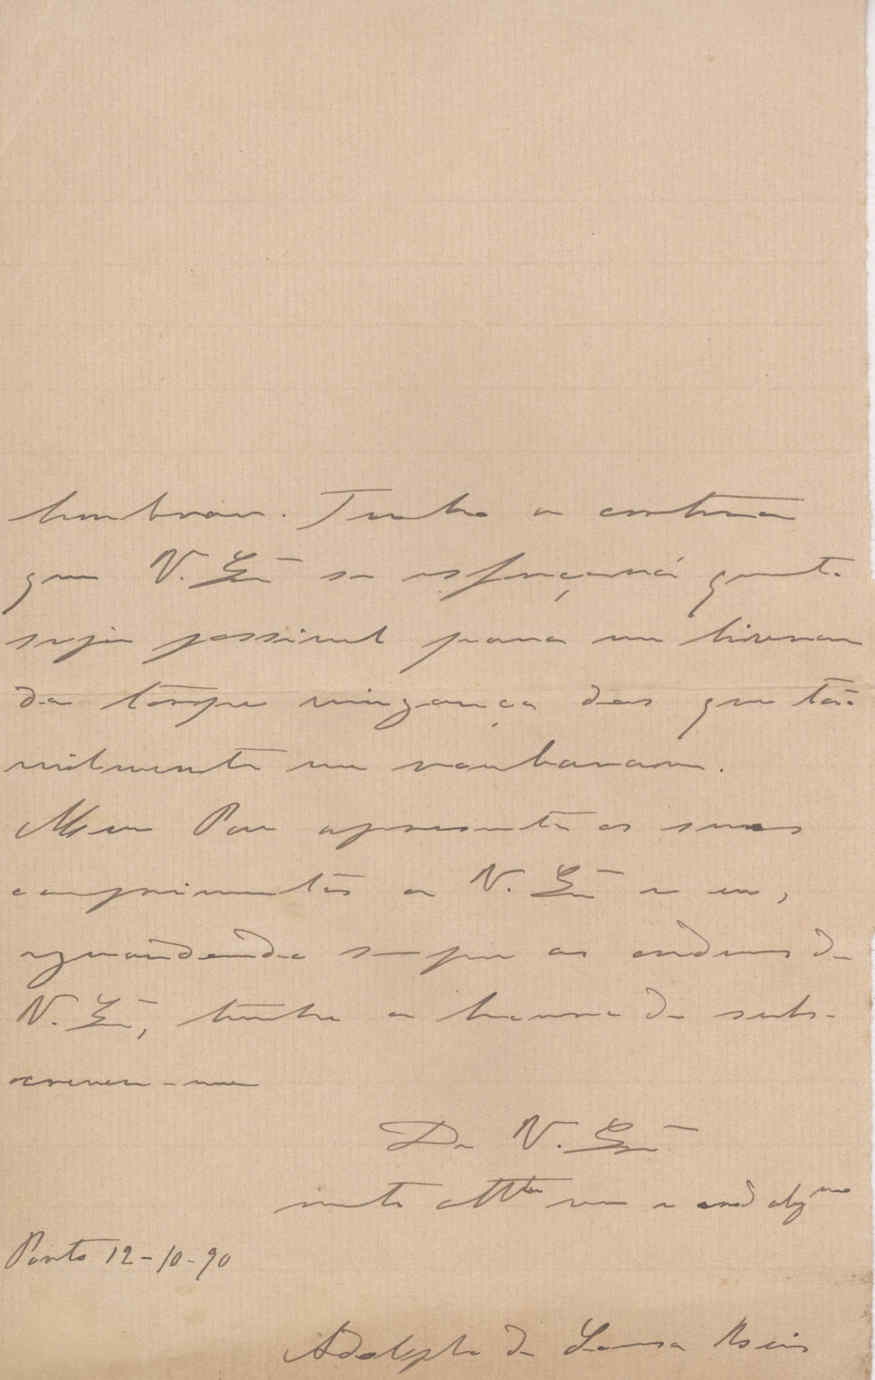 lembrar. Tenho a certeza
que V. Exª se esforçará quanto
seja possivel para me livrar
da torpe vingança dos que tão
vilmente me roubaram.
Meu Pae apresenta os seus
comprimentos a V. Exª e eu,
aguardando sempre as ordens de
V. Exª, tenho a honra de subs-
crever-me
De V. Exª
mto attto ven e crdº obgmo
Porto 12-10-90
Adolpho de Sousa Reis